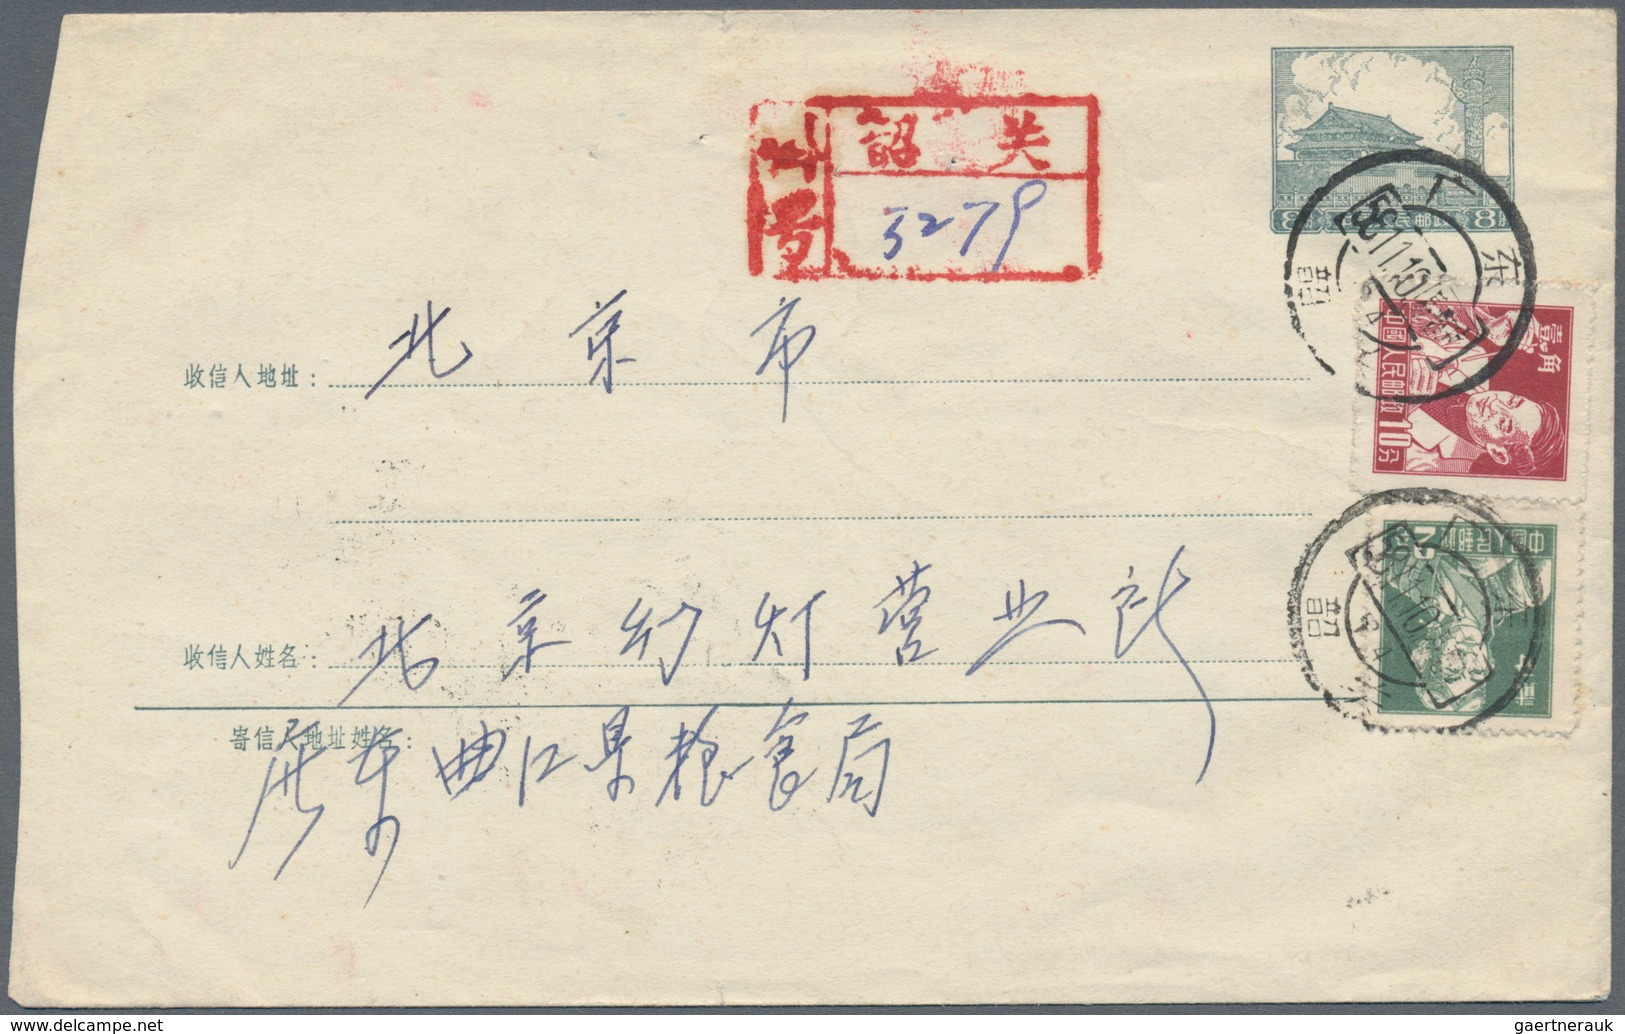 韶关
3279
8 中国人民邮政 8
广东
韶
壹角
中國人民邮政
10分
收信人地址：北京市
中國人民郵政
收信人姓名：北京幻灯营业所
寄信人地址姓名：
广东曲江县粮食局
gaertnerauk
delcampe.net